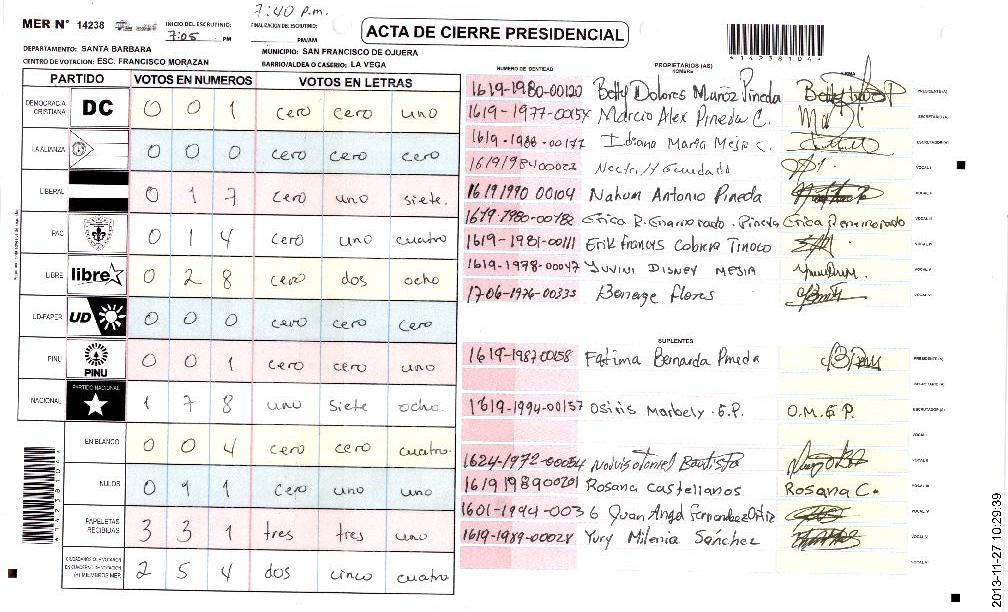 7:40 p.m.
MER N° 14238
INICIO DEL ESCRUTINIO: 7:05 PM
FINALIZACION DEL ESCRUTINIO: PM/AM
ACTA DE CIERRE PRESIDENCIAL
*14238104*
DEPARTAMENTO: SANTA BARBARA
MUNICIPIO: SAN FRANCISCO DE OJUERA
CENTRO DE VOTACION: ESC. FRANCISCO MORAZAN
BARRIO/ALDEA O CASERIO: LA VEGA
PARTIDO VOTOS EN NUMEROS VOTOS EN LETRAS
DEMOCRACIA CRISTIANA DC 0 0 1 cero cero uno
LA ALIANZA 0 0 0 cero cero cero
LIBERAL 0 1 7 cero uno siete.
PAC 0 1 4 cero uno cuatro
LIBRE libre 0 2 8 cero dos ocho
UD-FAPER UD 0 0 0 cero cero cero
PINU PINU 0 0 1 cero cero uno
NACIONAL PARTIDO NACIONAL 1 7 8 uno siete ocho.
EN BLANCO 0 0 4 cero cero cuatro.
NULOS 0 1 1 cero uno uno
PAPELETAS RECIBIDAS 3 3 1 tres tres uno
CIUDADANOS QUE VOTARON EN CUADERNO DE VOTACION (+) MIEMBROS MER 2 5 4 dos cinco cuatro
*14238104*
NUMERO DE IDENTIDAD PROPIETARIOS (AS) NOMBRE FIRMA
1619-1980-00120 Betty Dolores Muñoz Pineda PRESIDENTE(A)
1619-1977-00154 Marcio Alex Pineda C. SECRETARIO(A)
1619-1988-00177 Idiana Maria Mejia C. ESCRUTADOR(A)
1619198400022 VOCAL I
1619 1990 00104 Nahum Antonio Pineda VOCAL II
1619-1980-00782 Erica R. Enamorado. Pineda Erica R. enamorado VOCAL III
1619-1981-00111 Erik Francis Cabrera Tinoco VOCAL IV
1619-1978-00047 YUVINI DISNEY MEJIA VOCAL V
1706-1976-00333 Flores VOCAL VI
SUPLENTES
1619-1987-00158 Fatima Bernarda Pineda PRESIDENTE(A)
SECRETARIO(A)
1619-1994-00157 Osiris Marbely. E.P. O.M.E P. ESCRUTADOR(A)
VOCAL I
1624-1972-00054 Bautista VOCAL II
1619198900201 Rosana Castellanos Rosana C. VOCAL III
1601-1994-003 6 Juan Angel Fernandez Ortiz VOCAL IV
1619-1989-00028 Yury Milenia Sanchez VOCAL V
VOCAL VI
2013-11-27 10:29:39